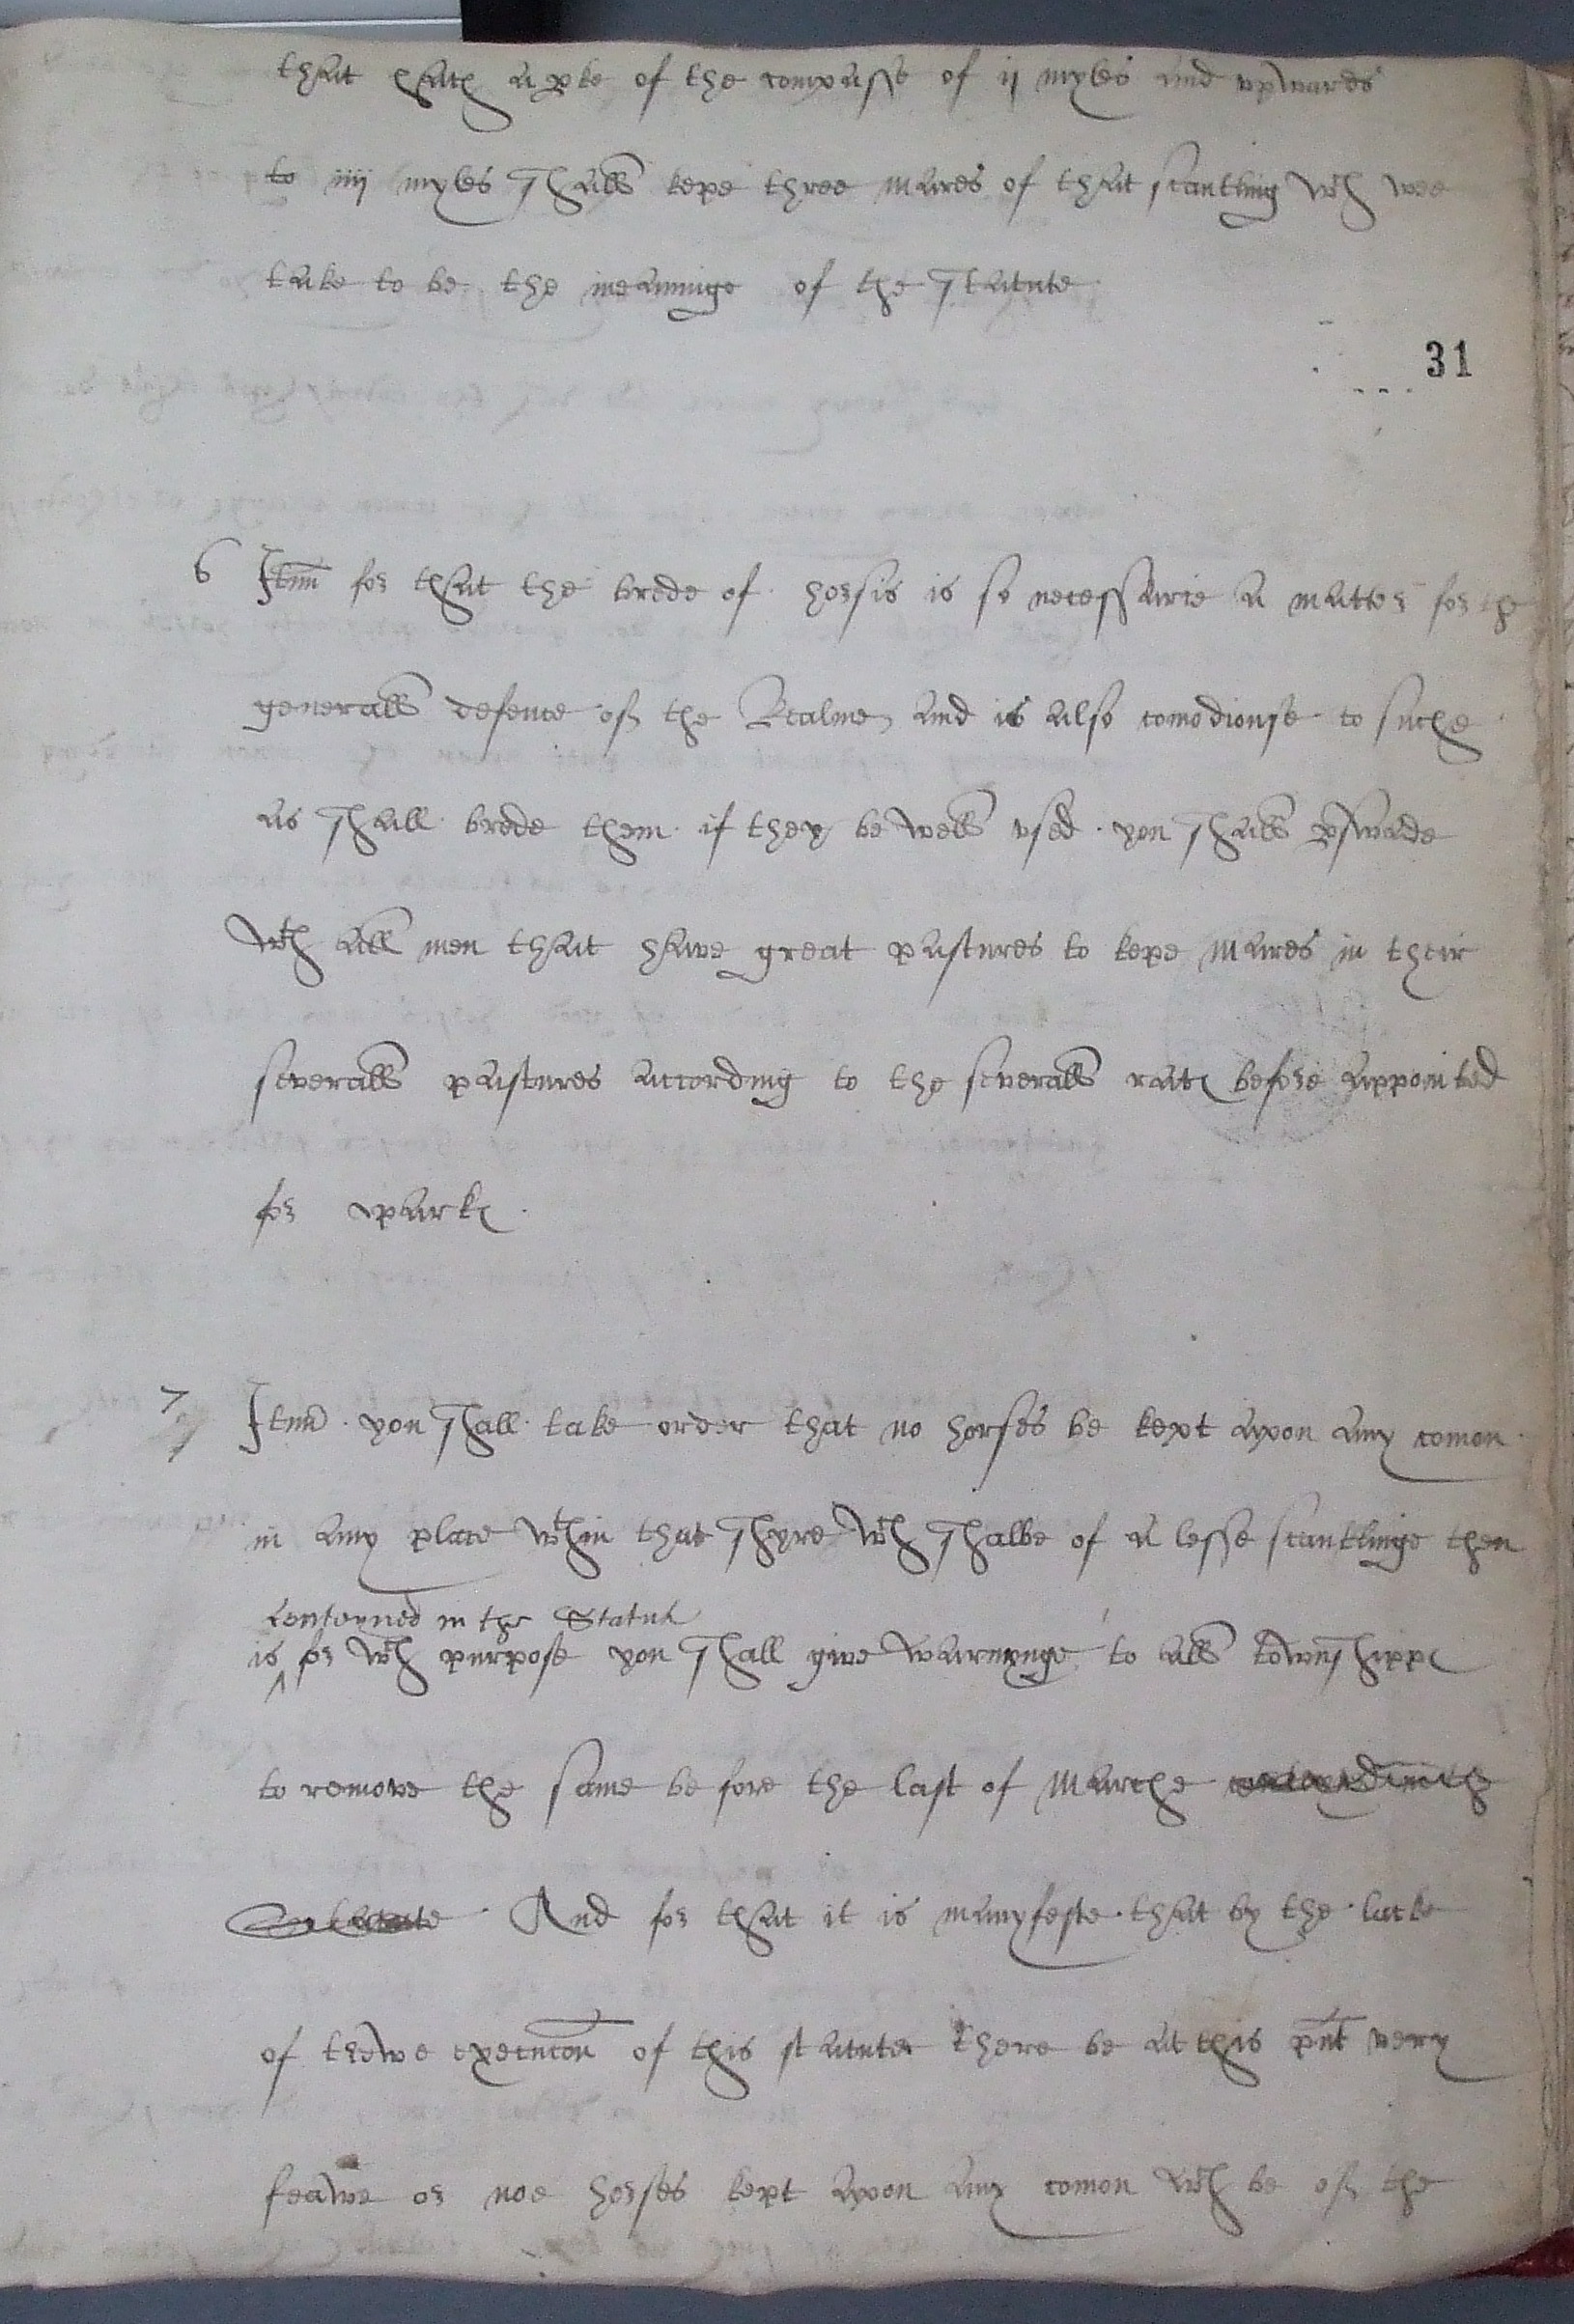 that hath a pke of the compasse of ij myles and vpwards
to iiij myles shall kepe three mares of that scantling wch wee
take to be the meaninge of the statute
31
6 Itm for that the brede of horsis is so necessarie a matter for the
generall defence of the Realme, and is also comodiouse to suche
as shall brede them if they be well vsed. you shall pswade
wth all men that have great pastures to kepe mares in their
severall pastures according to the severall rate before appointed
for parke.
7 Itm. you shall take order that no horses be kept apon any comon
in any place wthin that shyre wch shalbe of a lesse scantlinge then
conteyned in the Statute
is for wch purpose you shall give warnynge to all townshippe
to remove the same before the last of Marche
Statute. And for that it is manyfeste that by the lacke
of trewe execucon of this statute there be at this pnt very
feawe or noe horses kept apon any comon wch be of the